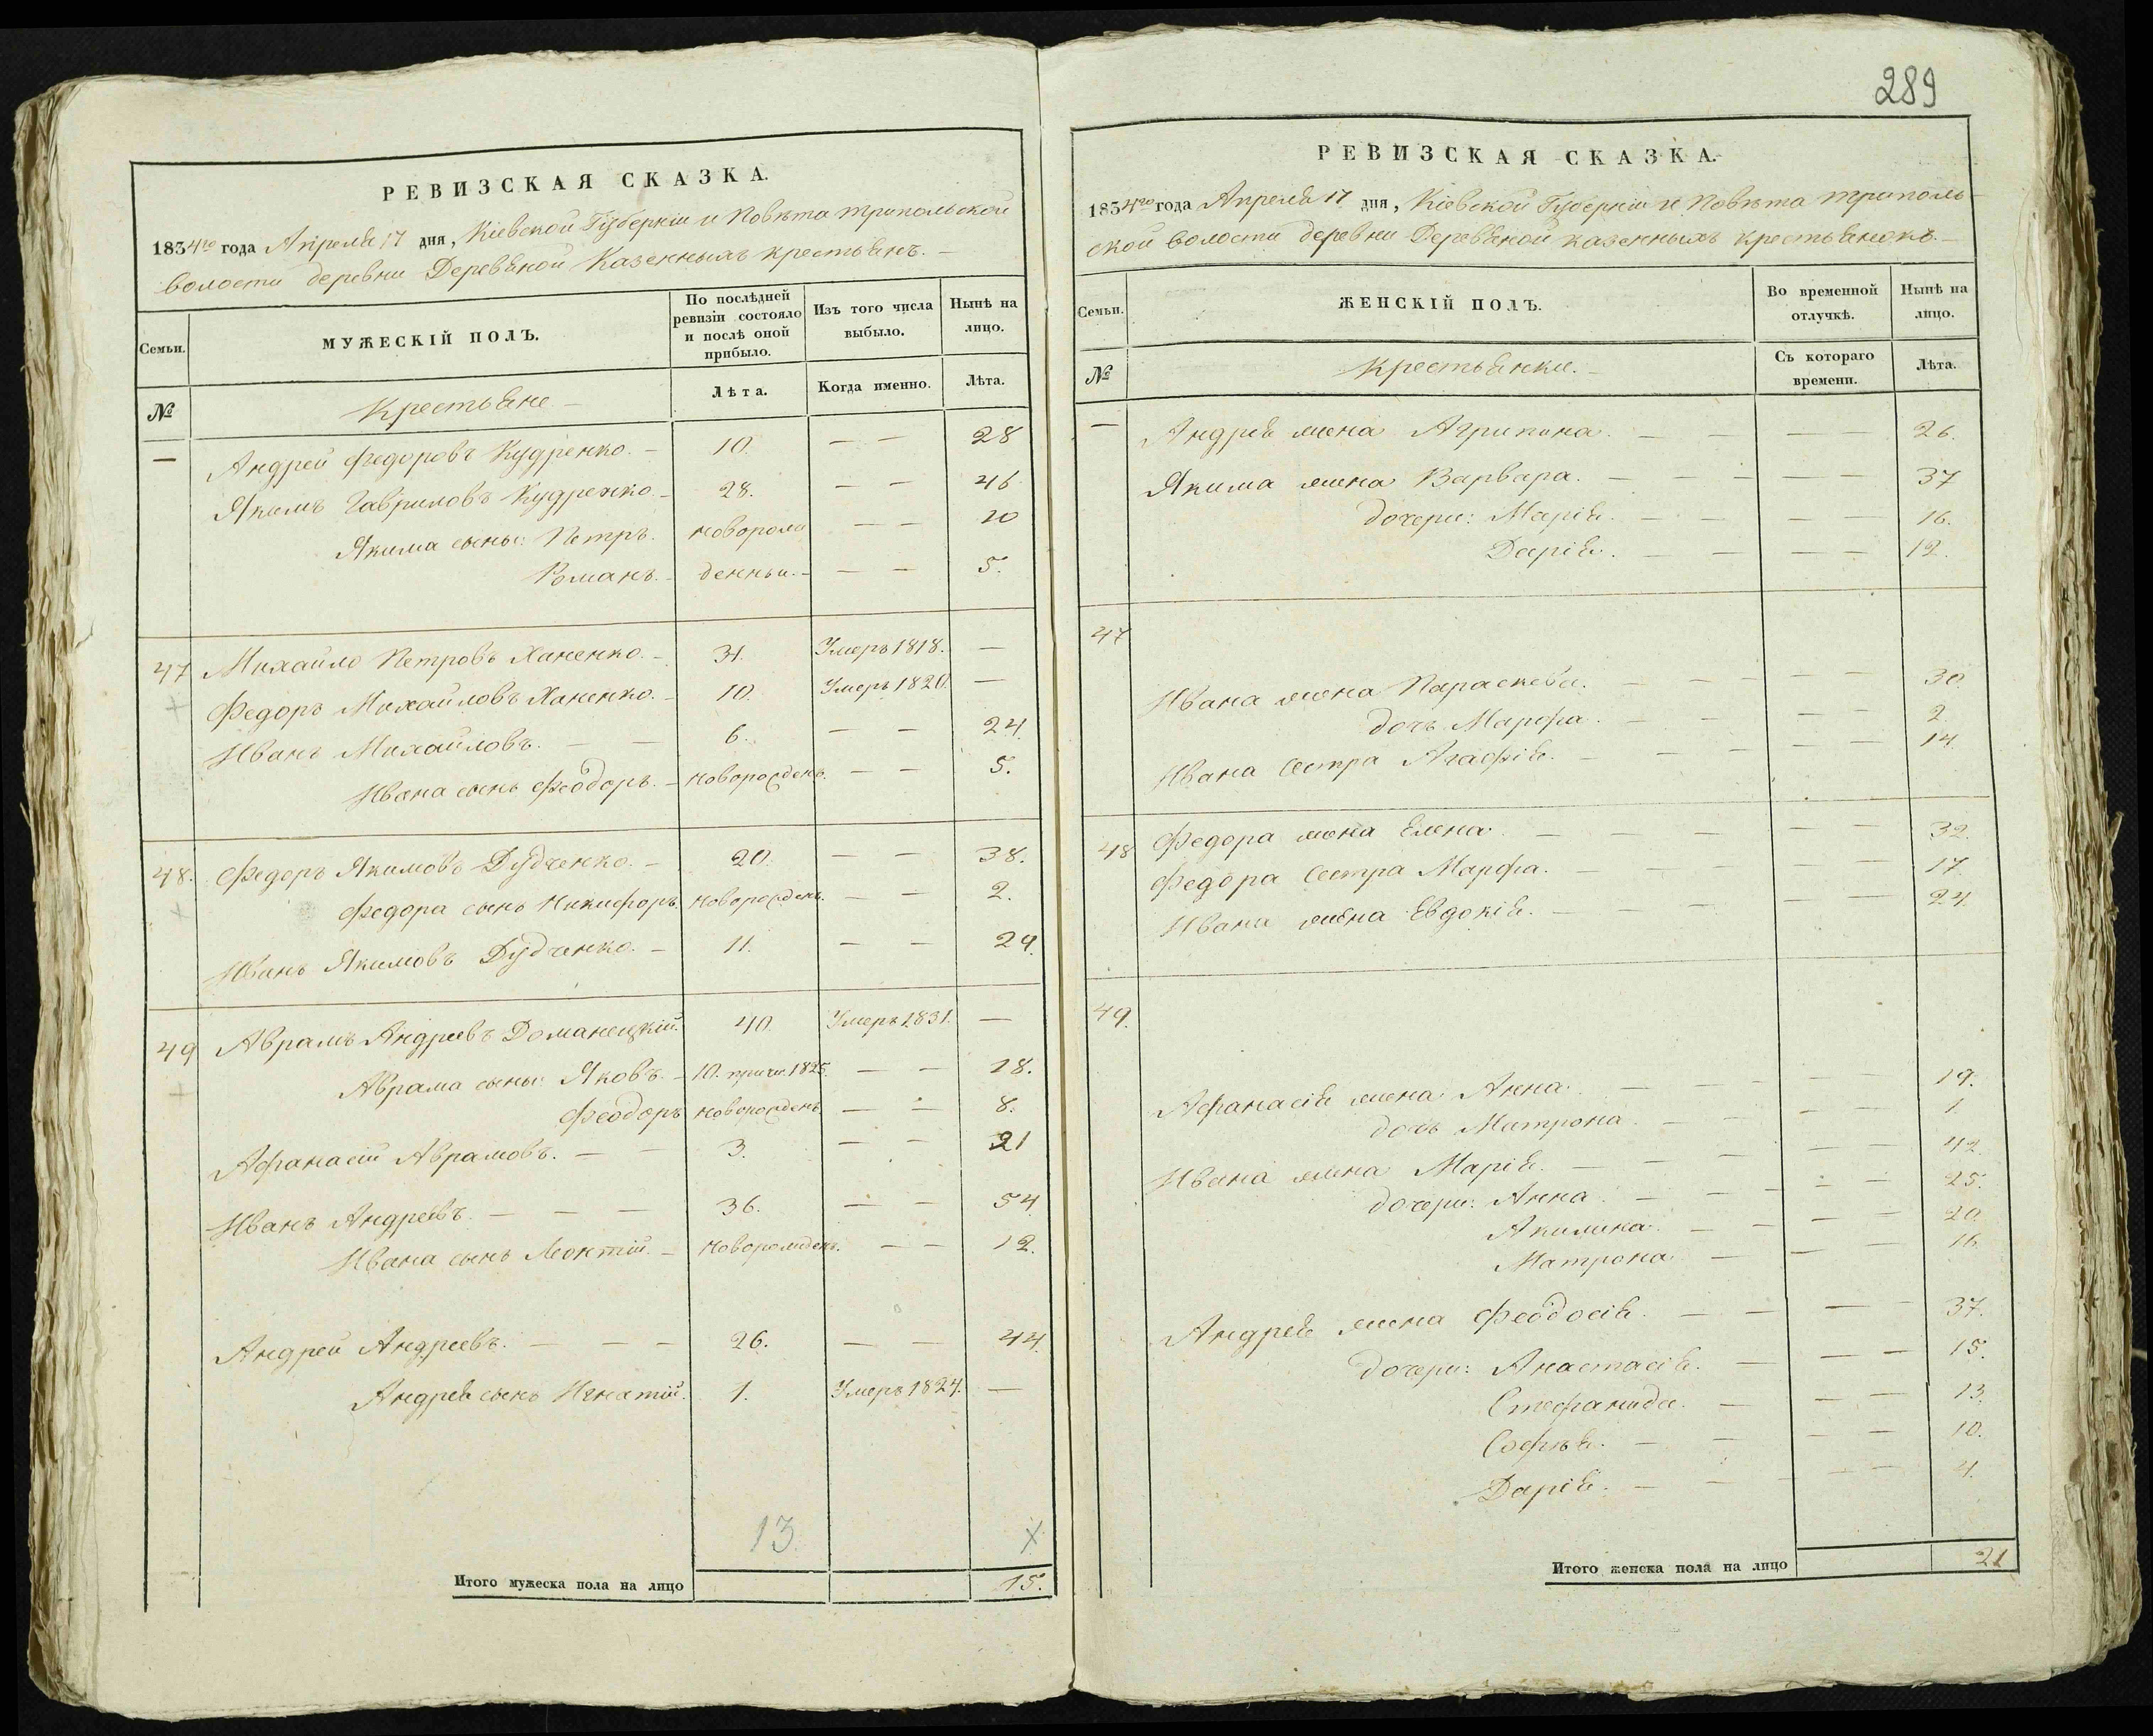 289
РЕВИЗСКАЯ СКАЗКА.
1834го года Апреля 17 дня, Кіевской Губерніи и Повѣта трипольской
волости деревни Деревяной Казенныхъ крестьянъ.
Семьи.
МУЖЕСКІЙ ПОЛЪ.
По послѣдней ревизіи состояло и послѣ оной прибыло.
Изъ того числа выбыло.
Нынѣ на лицо.
№
Крестьяне
Лѣта.
Когда именно.
Лѣта.
— Андрей Федоровъ Кудренко. — 10. — — 28
Якимъ Гавриловъ Кудренко. — 28. — — 46
Якима сыны: Петръ. новорож — — 10
Романъ. — денныи. — — — 5.
47 Михайло Петровъ Ханенко. — 31. Умеръ 1818. —
Федоръ Михайловъ Ханенко. — 10. Умеръ 1820. —
Иванъ Михайловъ. — — 6. — — 24.
Ивана сынъ Феодоръ. — новорожденъ. — — 5.
48. Федоръ Якимовъ Дудченко. — 20. — — 38.
Федора сынъ Никифоръ новорожденъ. — — 2.
Иванъ Якимовъ Дудченко. — 11. — — 29.
49 Аврамъ Андреевъ Доманецкій. 40. Умеръ 1831. —
Аврама сыны: Яковъ. — 10. причи. 1825. — — 18.
Феодоръ новорожденъ — — 8.
Афанасій Аврамовъ. — — 3. — — 21
Иванъ Андреевъ. — — — 36. — — 54
Ивана сынъ Леонтій. — новорожденъ. — — 12.
Андрей Андреевъ. — — — 26. — — 44.
Андрея сынъ Игнатій. 1. Умеръ 1824. —
13. X
Итого мужеска пола на лицо 15.
РЕВИЗСКАЯ СКАЗКА.
1834го года Апреля 17 дня, Кіевской Губерніи и Повѣта триполь
ской волости деревни Деревяной казенныхъ крестьянокъ. —
Семьи.
ЖЕНСКІЙ ПОЛЪ.
Во временной отлучкѣ.
Нынѣ на лицо.
№
Крестьянки. —
Съ котораго времени.
Лѣта.
— Андрея жена Агрипина. — — — — 26.
Якима жена Варвара. — — — — — 37
дочери: Марія. — — — — 16.
Дарія. — — — — 12.
47
Ивана жена Параскева. — — — — 30.
дочь Марфа. — — — 2.
Ивана Сестра Агафія. — — — — — 14.
48 Федора жена Елена. — — — — — 32.
Федора Сестра Марфа. — — — — 17.
Ивана жена Евдокія. — — — — — 24.
49.
Афанасія жена Анна. — — — — 19.
дочь Матрона. — — — — 1.
Ивана жена Марія. — — — — — 42.
дочери: Анна. — — — — — 25.
Акилина. — — — — 20.
Матрона — — — 16.
Андрея жена Феодосія. — — — — 37.
дочери: Анастасія. — — — 15.
Стефанида. — — — 13.
Софья. — — — — 10.
Дарія. — — — — 4.
Итого женска пола на лицо 21